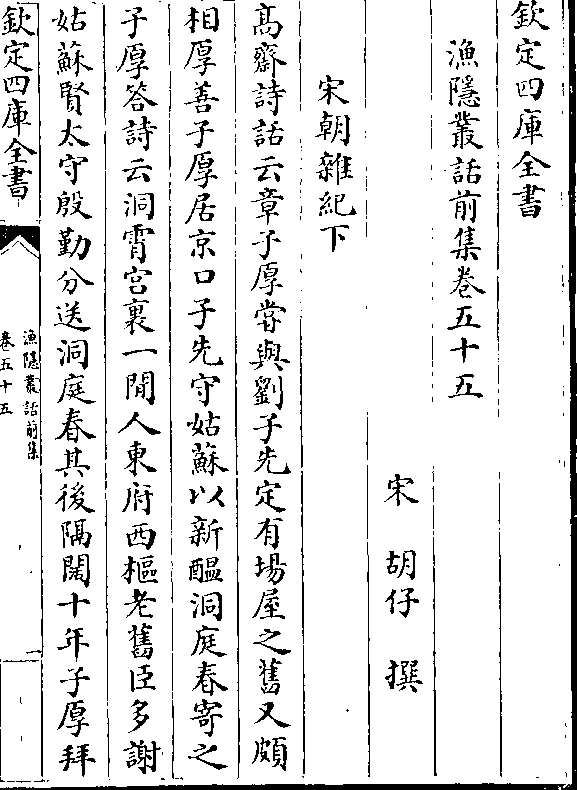 欽定四庫全書
漁隱叢話前集卷五十五
宋 胡仔 撰
宋朝雜紀下
髙齋詩話云章子厚嘗與劉子先定有場屋之舊又頗
相厚善子厚居京口子先守姑蘇以新醖洞庭春寄之
子厚答詩云洞霄宮裏一閒人東府西樞老舊臣多謝
姑蘇賢太守殷勤分送洞庭春其後隔闊十年子厚拜
欽定四庫全書
漁隱叢話前集
卷五十五
一